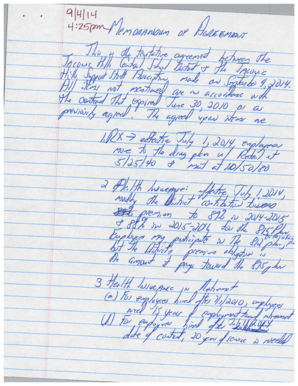 9/4/14
4:25pm Memorandum of Agreement
This is the tentative agreement between the
Central School District & the
Support Staff made on September 4, 2014.
All items not mentioned are in accordance with
the contract that expired June 30, 2010 or as
previously agreed. The agreed upon items are
1) RX → effective July 1, 2014, employees
move to the drug plan w/ Retail at
5/25/40 + mail at 10/50/80
2 Health Insurance: effective July 1, 2014,
modify the District contribution towards
premium to 89% in 2014-2015
+ 88% in 2015-2016 for the
Employees may participate in the plan,
but the District's premium is
the amount it pays toward the plan
3 Health Insurance in Retirement
(a) For employees hired after 7/1/2010, employees
need 15 years of employment and
(b) For employees hired after
date of contract, 20 years of service is needed